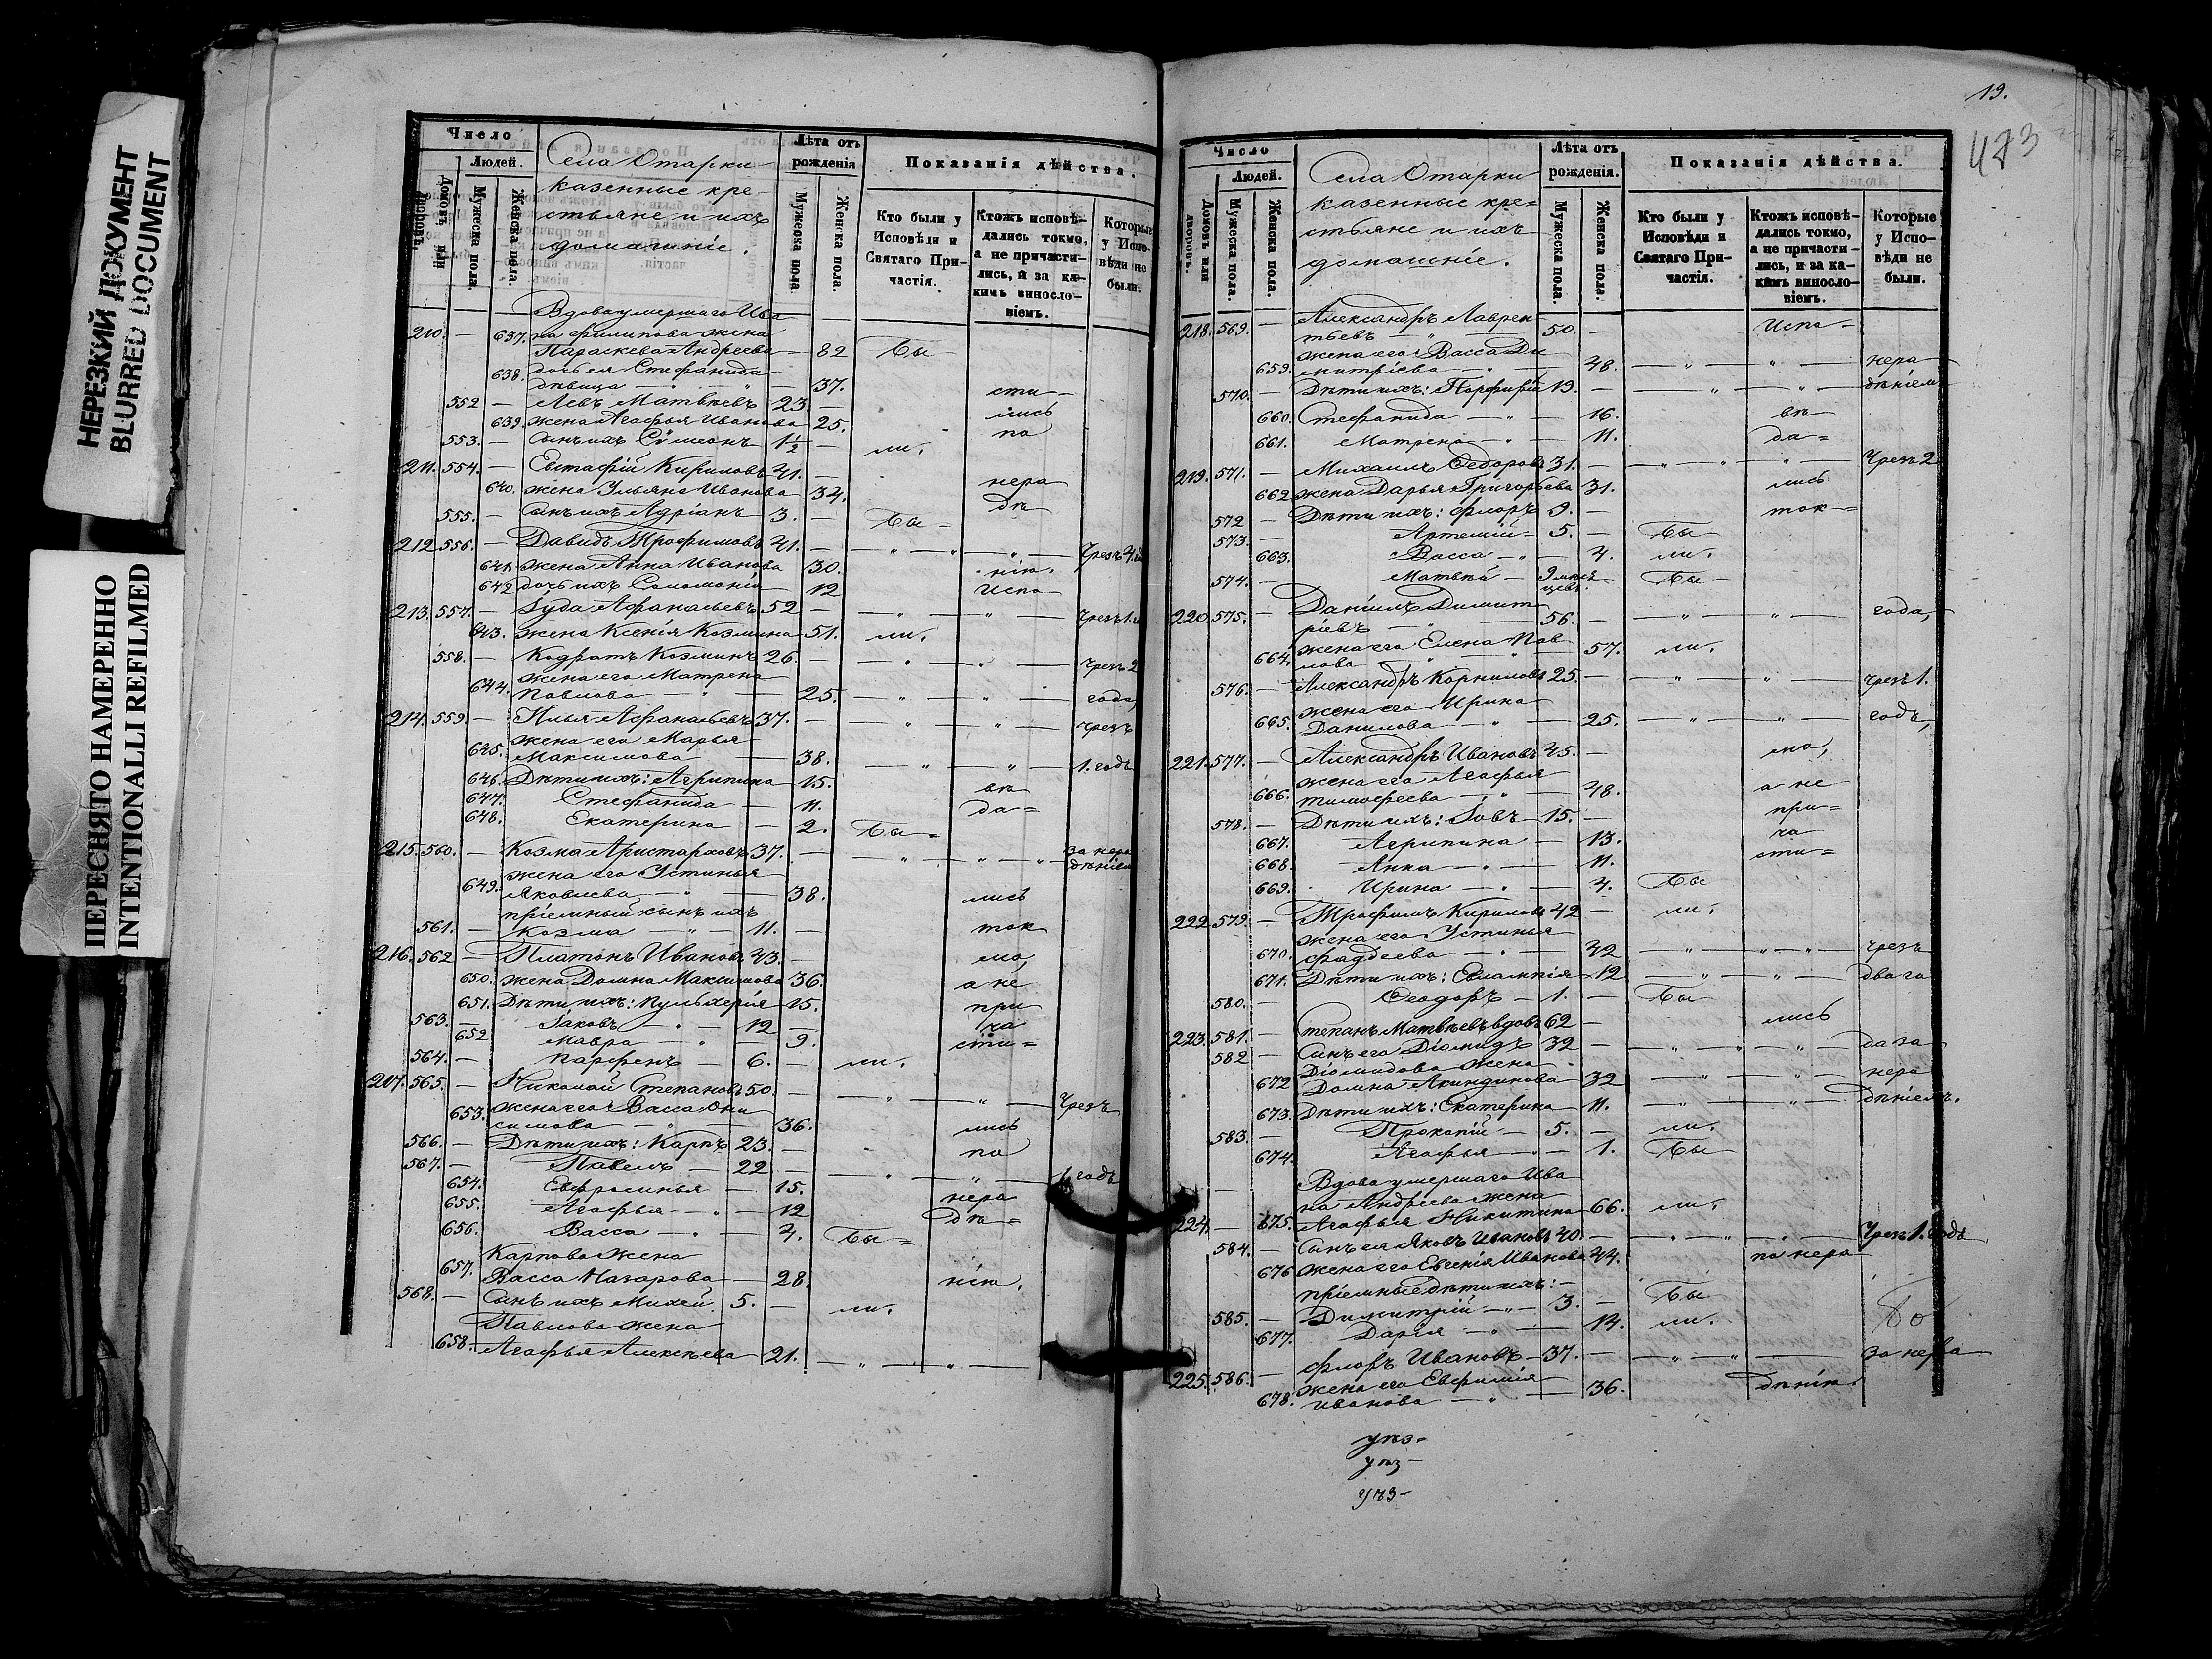 НЕРЕЗКИЙ ДОКУМЕНТ
BLURRED DOCUMENT
ПЕРЕСНЯТО НАМЕРЕННО
INTENTIONALLI REFILMED
Число
Людей.
Домовъ или дворовъ.
Мужеска пола.
Женска пола.
Села Отарки
казенные кре-
стьяне и ихъ
домашніе.
Лѣта отъ
рожденія
Мужеска пола
Женска пола.
Показанія дѣйства.
Кто были у
Исповѣди и
Святаго При-
частія.
Ктожъ исповѣ-
дались токмо,
а не причасти-
лись, и за ка-
кимъ винносло-
віемъ.
Которые
у Испо-
вѣди не
были.
Вдова умершаго Ива
210. — 637. на Филипова жена
Параскева Андреева — 82 бы
638. дочь ея Стефанида
дѣвица — " — 37. сти-
552 — Левъ Матвѣевъ 23. — лись
639. жена Агафья Иванова 25. по
553. — Сынъ ихъ Сѵмеонъ 1½ — ли.
211. 554. — Евстафій Кириловъ 41. —
640. жена Ульяна Иванова 34. нера
555. — Сынъ ихъ Адріанъ 3. — бы- дѣ
212. 556. — Давидъ Трофимовъ 41. — " — " — " — Чрезъ
641. жена Анна Иванова 30. нію.
642 дочь ихъ Соломонія 12 Испо
213. 557. — Іуда Афанасьевъ 52 — " — " — Чрезъ 1.
643. жена Ксенія Козмина 51. ли.
558. — Кодратъ Козминъ 26. — " — " — чрезъ 2
жена его Матрена
644. Павлова — " — 25. — " — " года,
214. 559. — Илья Афанасьевъ 37. — " — " — чрезъ
жена его Марья
645. Максимова — 38. — " — " — 1. годъ
646. Дѣти ихъ: Агрипина 15. вѣ
647. Стефанида — 11. да=
648. Екатерина — 2. бы=
215. 560. — Козма Аристарховъ 37. — " — " — " за нера
дѣніем
жена его Устинья
649. Яковлева — " — 38. лись
пріемный сынъ ихъ
561. — Козма — " — 11. — ток
216. 562 — Платонъ Ивановъ 43. — мо,
650. жена Домна Максимова 36. а не
651. Дѣти ихъ: Пульхерія 15. при
563. — Іаковъ — " — 12 — ча
652 Мавра — " — 9. сти=
564. — Парфенъ — 6. — ли.
217. 565. — Николай Степановъ 50. — " — " — Чрезъ
653. жена его Васса Они
симова — " — 36. лись
566. — Дѣти ихъ: Карпъ 23. — по
567. — Павелъ — 22 — " — " — 1. годъ
654. Евфросинья — 15. нера
655. Агафья — " — 12 дѣ=
656. Васса — " — 4. бы=
Карпова жена
657. Васса Назарова — 28. нію.
568. — Сынъ ихъ Михей 5. — ли.
Павлова жена
658. Агафья Алексѣева — 21. — " — " —
19.
473
Число
Людей.
Домовъ или дворовъ.
Мужеска пола.
Женска пола.
Села Отарки
казенные кре=
стьяне и ихъ
домашніе.
Лѣта отъ
рожденія.
Мужеска пола.
Женска пола.
Показанія дѣйства.
Кто были у
Исповѣди и
Святаго При-
частія.
Ктожъ исповѣ-
дались токмо,
а не причасти-
лись, и за ка-
кимъ винносло-
віемъ.
Которые
у Испо-
вѣди не
были.
218. 569. — Александръ Лаврен-
тьевъ — " — 50. — Испо=
жена его Васса Ди
659. митріева — " — 48. — " — " — нера
570. — Дѣти ихъ: Порфирій 19. — " — " — дѣніем
660. Стефанида — " — 16. вѣ
661. Матрена — " — 11. да=
219. 571. — Михаилъ Федоровъ 31. — " — " — " — Чрезъ 2
662 жена Дарья Григорьева 31. лись
572 — Дѣти ихъ: Флоръ 9. — ток=
573. — Артемій — 5. — бы
663. Васса — " — 4. ли.
574. — Матвѣй — 9 мѣся
цев. бы-
220. 575. — Даніилъ Димит
ріевъ — " — 56. — " — " — года,
664. жена его Елена Пав
лова — " — 57. ли.
576. — Александръ Корниловъ 25. — " — " — чрезъ 1.
жена его Ирина
665. Данилова — " — 25. — " — " — годъ,
221. 577. — Александръ Ивановъ 45. — мо,
жена его Агафья
666. Тимофеева — " — 48. а не
578. — Дѣти ихъ: Іовъ — 15. — при=
667. Агрипина — 13. ча
668. Анна — " — 11. сти=
669. Ирина — " — 4. бы
222 579. — Трофимъ Кириловъ 42 — ли.
жена его Устинья
670. Фаддеева — " — 42 — " — " — " — чрезъ
671. Дѣти ихъ: Евлампія — 12 — " — " — два го
580. — Ѳеодоръ — 1. — бы
223. 581. — Степанъ Матвѣевъ вдовъ 62 — лись
582 — Сынъ его Діомидъ 32 — " — " — " — да за
Діомидова жена
672 Домна Акиндинова 32 — " — " — нера
673. Дѣти ихъ: Екатерина 11. — " — " — дѣніемъ.
583. — Прокопій — 5. — ли.
674. Агафья — 1. бы
Вдова умершаго Ива
на Андреева жена
224. — 675. Агафья Никитина 66. ли.
584. — Сынъ ея Яковъ Ивановъ 40. — " — " — " — Чрезъ 1. годъ
676 жена его Евгенія Иванова 44. по нера
пріемные дѣти ихъ: —
585. — Димитрій — " — 3. — бы
677. Дарія — " — 14. ли.
225. 586. — Флоръ Ивановъ — 37. — " — " — за нера
жена его Евфимія
678. Иванова — " — 36. дѣнію.